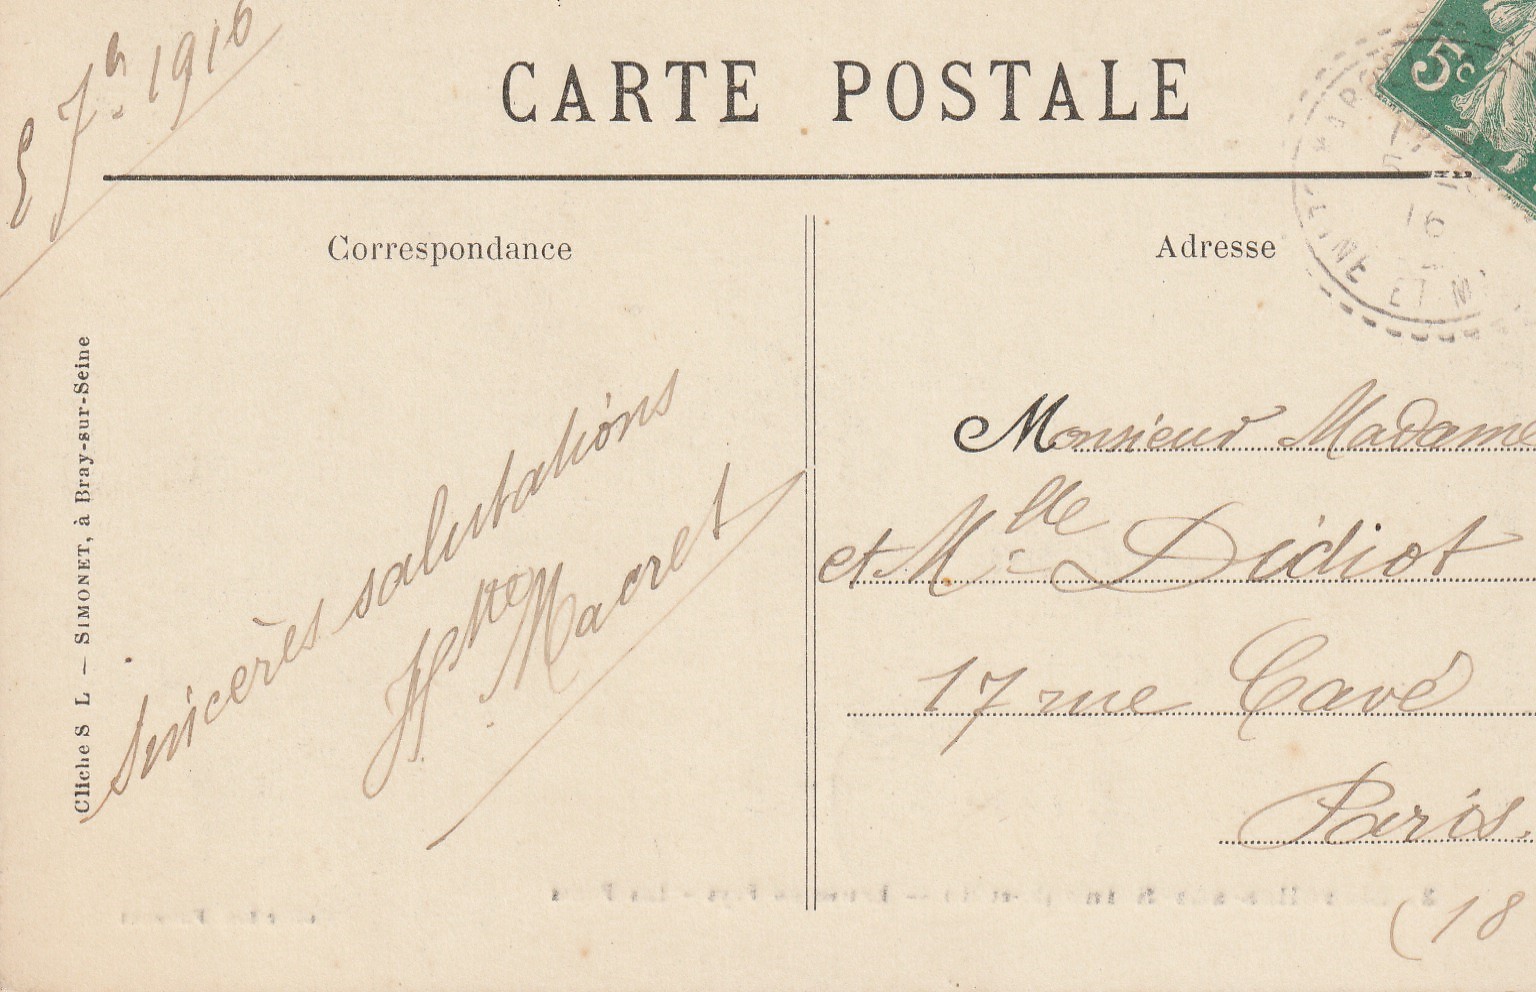 5 7h 1916
CARTE POSTALE
5c
16
SEINE ET M
Correspondance
Adresse
Cliche S L — SIMONET, à Bray-sur-Seine
Sincères salutations
Macret
Monsieur Madame
et Mlle Didiot
17 rue Cavé
Paris.
(18